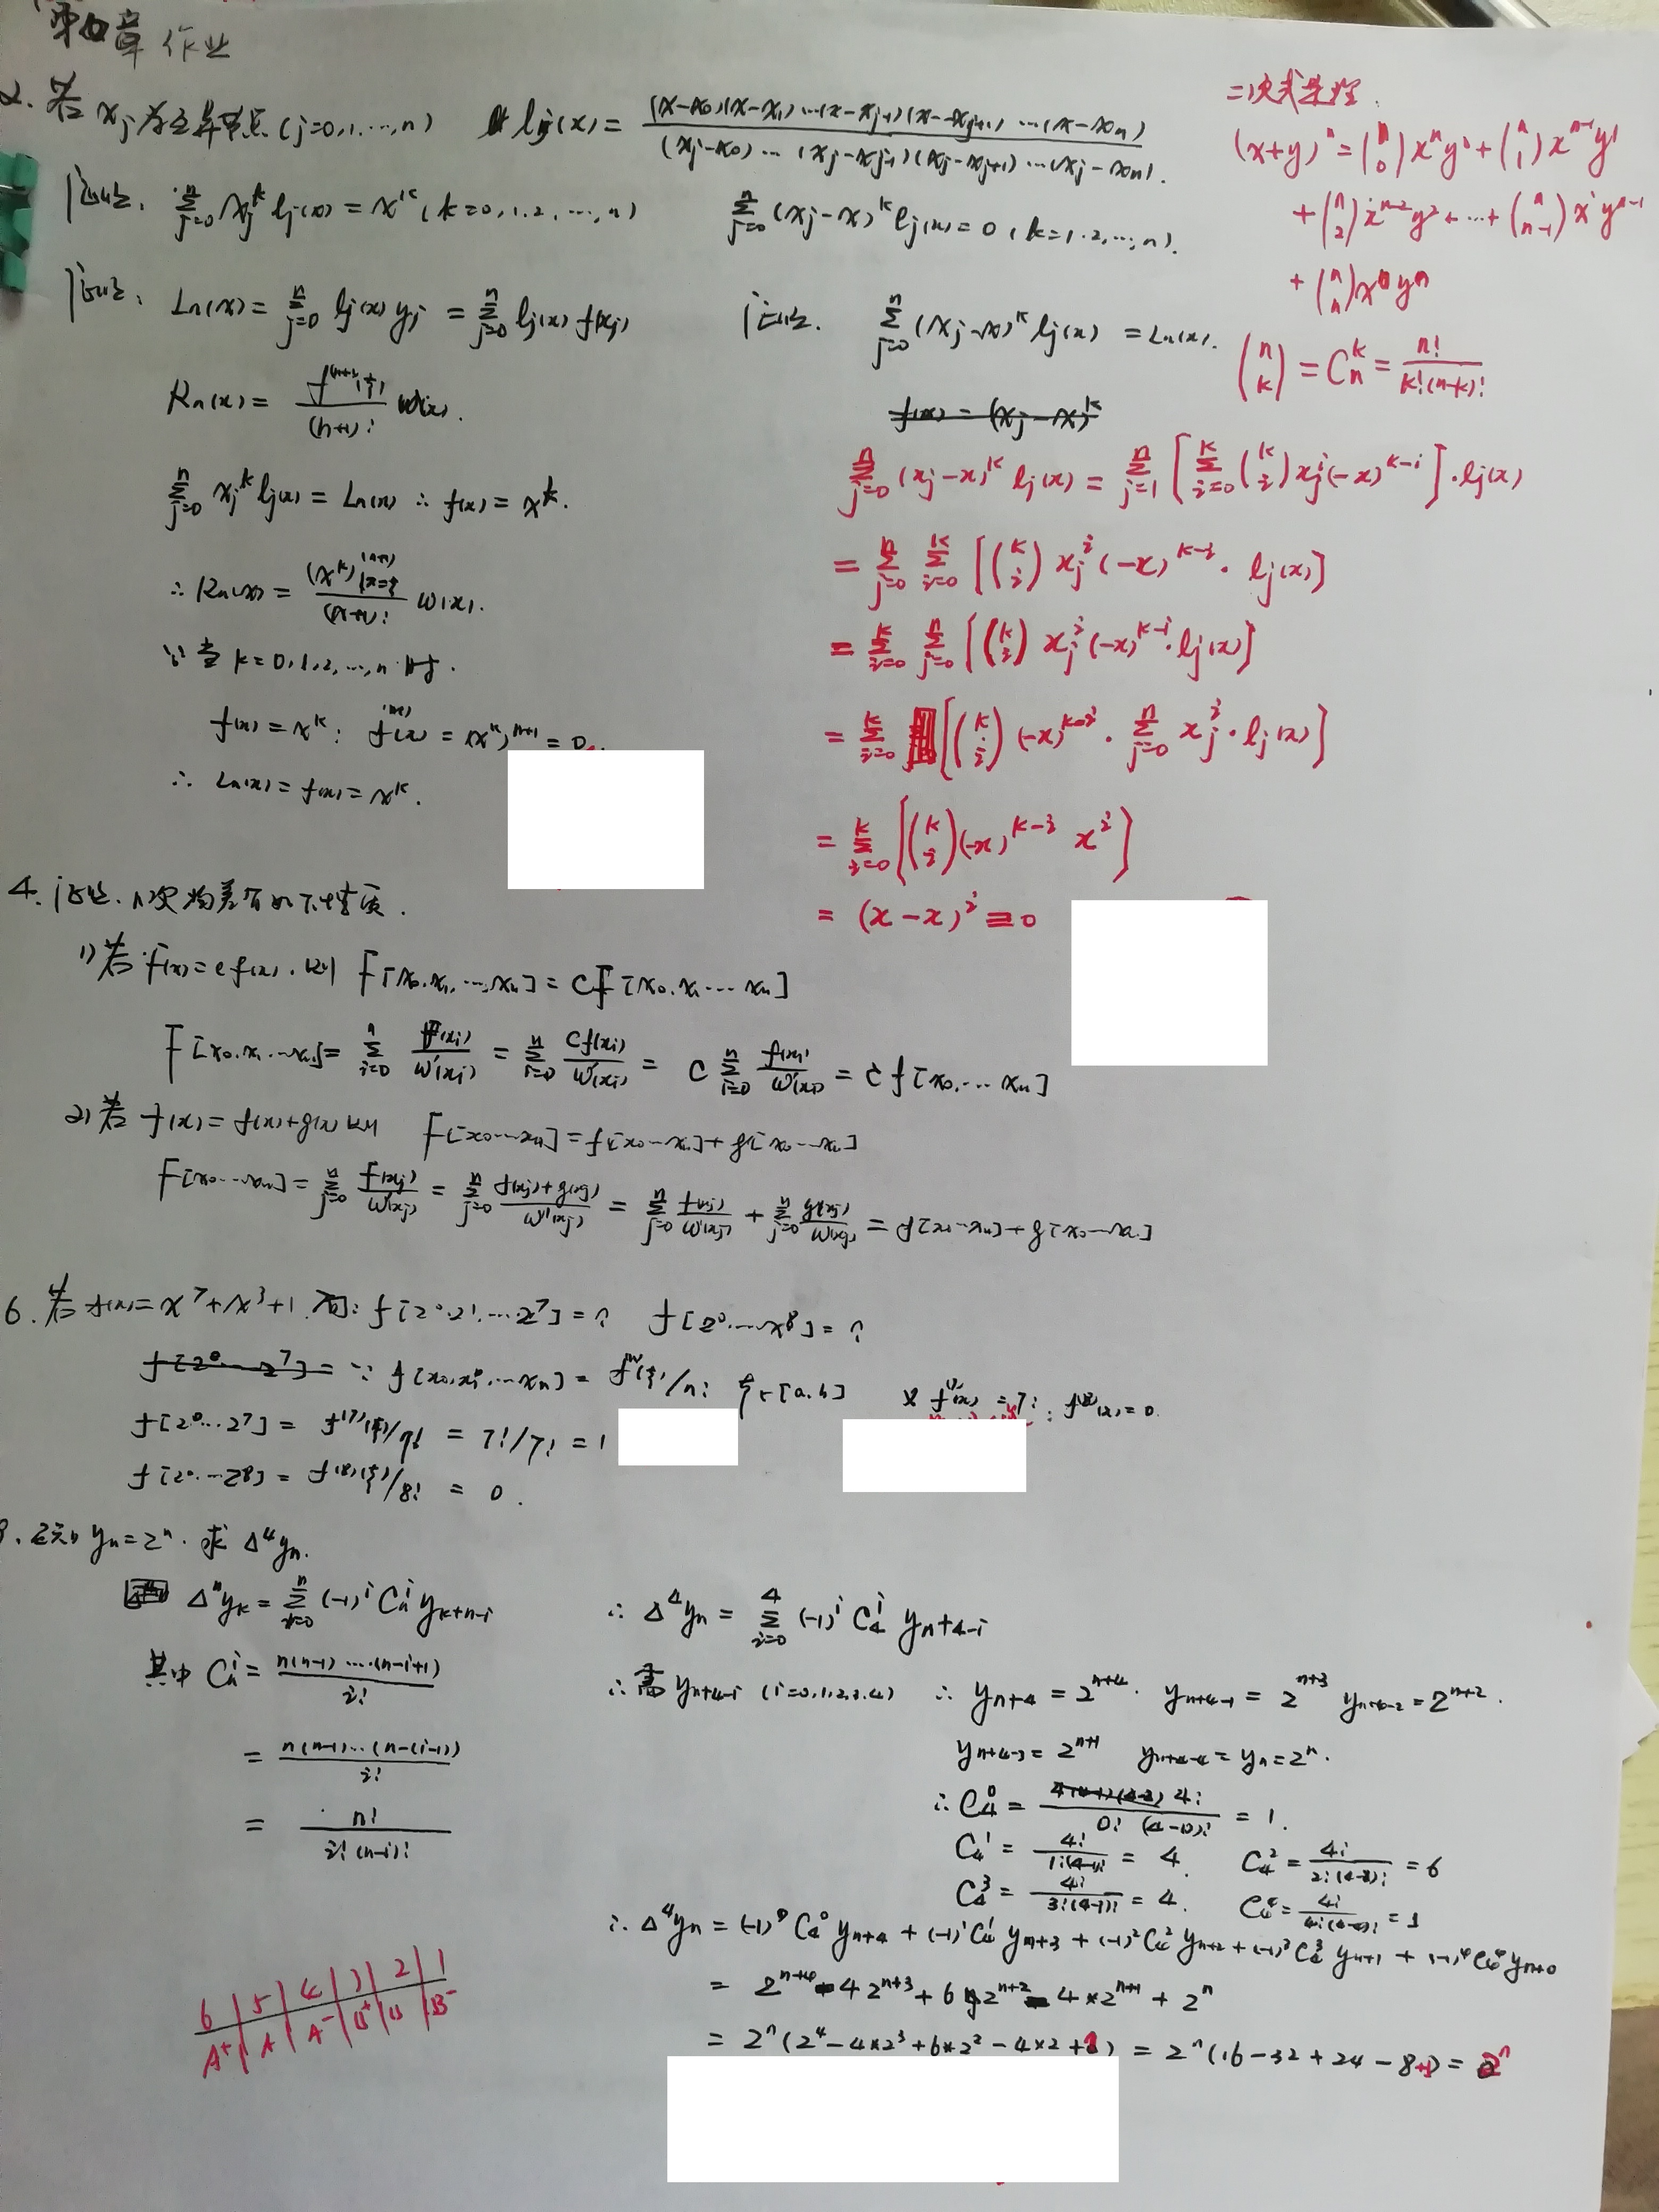 第四章 作业
2. 若 xj 为互异节点 (j=0,1,…,n) lj(x) = (x-x0)(x-x1)…(x-xj-1)(x-xj+1)…(x-xn) / (xj-x0)…(xj-xj-1)(xj-xj+1)…(xj-xn).
证: Σ(j=0→n) xj^k lj(x) = x^k (k=0,1,2,…,n) Σ(j=0→n) (xj-x)^k lj(x) = 0 (k=1.2,…,n).
证: Ln(x) = Σ(j=0→n) lj(x) yj = Σ(j=0→n) lj(x) f(xj)
Rn(x) = f^(n+1)(ξ) / (n+1)! w(x).
Σ(j=0→n) xj^k lj(x) = Ln(x) ∴ f(x) = x^k.
∴ Rn(x) = (x^k)^(n+1)|x=ξ / (n+1)! w(x).
∵ 当 k=0,1,2,…,n 时.
f(x) = x^k: f^(n+1)(x) = (x^k)^(n+1) = 0
∴ Ln(x) = f(x) = x^k.
证. Σ(j=0→n) (xj-x)^k lj(x) = Ln(x).
f(x) = (xj-x)^k
二项式定理.
(x+y)^n = (n 0) x^n y^0 + (n 1) x^(n-1) y^1
+ (n 2) x^(n-2) y^2 + … + (n n-1) x^1 y^(n-1)
+ (n n) x^0 y^n
(n k) = C_n^k = n! / k!(n-k)!
Σ(j=0→n) (xj-x)^k lj(x) = Σ(j=1→n) [Σ(i=0→k) (k i) xj^i (-x)^(k-i)]·lj(x)
= Σ(j=0→n) Σ(i=0→k) [(k i) xj^i (-x)^(k-i)·lj(x)]
= Σ(i=0→k) Σ(j=0→n) [(k i) xj^i (-x)^(k-i)·lj(x)]
= Σ(i=0→k) [(k i) (-x)^(k-i)·Σ(j=0→n) xj^i·lj(x)]
= Σ(i=0→k) [(k i) (-x)^(k-i) x^i]
= (x-x)^i ≡ 0
4. 证. n次均差有如下性质.
1) 若 F(x) = cf(x). 则 F[x0.x1.…,xn] = cf[x0.x1…xn]
F[x0.x1…xn] = Σ(i=0→n) F(xi)/w'(xi) = Σ(i=0→n) Cf(xi)/w'(xi) = C Σ(i=0→n) f(xi)/w'(xi) = C f[x0.…xn]
2) 若 F(x) = f(x)+g(x) 则 F[x0…xn] = f[x0…xn] + g[x0…xn]
F[x0…xn] = Σ(j=0→n) F(xj)/w'(xj) = Σ(j=0→n) f(xj)+g(xj)/w'(xj) = Σ(j=0→n) f(xj)/w'(xj) + Σ(j=0→n) g(xj)/w'(xj) = f[x0…xn] + g[x0…xn]
6. 若 f(x) = x^7+x^3+1. 问: f[2^0.2^1.…2^7] = ? f[2^0.…2^8] = ?
f[2^0…2^7] = ∵ f[x0,x1,…xn] = f^(n)(ξ)/n! ξ∈[a.b] 又 f^(7)(x) = 7!; f^(8)(x) = 0.
f[2^0…2^7] = f^(7)(ξ)/7! = 7!/7! = 1
f[2^0.…2^8] = f^(8)(ξ)/8! = 0.
已知 yn = 2^n. 求 Δ^4 yn.
Δ^n yk = Σ(i=0→n) (-1)^i C_n^i yk+n-i
其中 C_n^i = n(n-1)…(n-i+1) / i!
= n(n-1)…(n-(i-1)) / i!
= n! / i!(n-i)!
∴ Δ^4 yn = Σ(i=0→4) (-1)^i C_4^i yn+4-i
∴ yn+4-i (i=0,1,2,3,4) ∴ yn+4 = 2^(n+4). yn+4-1 = 2^(n+3) yn+4-2 = 2^(n+2).
yn+4-3 = 2^(n+1) yn+4-4 = yn = 2^n.
∴ C_4^0 = 4! / 0!(4-0)! = 1.
C_4^1 = 4! / 1!(4-1)! = 4. C_4^2 = 4! / 2!(4-2)! = 6
C_4^3 = 4! / 3!(4-1)! = 4. C_4^4 = 4! / 4!(4-4)! = 1
∴ Δ^4 yn = (-1)^0 C_4^0 yn+4 + (-1)^1 C_4^1 yn+3 + (-1)^2 C_4^2 yn+2 + (-1)^3 C_4^3 yn+1 + (-1)^4 C_4^4 yn+0
= 2^(n+4) - 4 2^(n+3) + 6 2^(n+2) - 4*2^(n+1) + 2^n
= 2^n (2^4 - 4*2^3 + 6*2^2 - 4*2 + 1) = 2^n (16-32+24-8+1) = 2^n
6 | 5 | 4 | 3 | 2 | 1
A+ | A | A- | B+ | B | B-